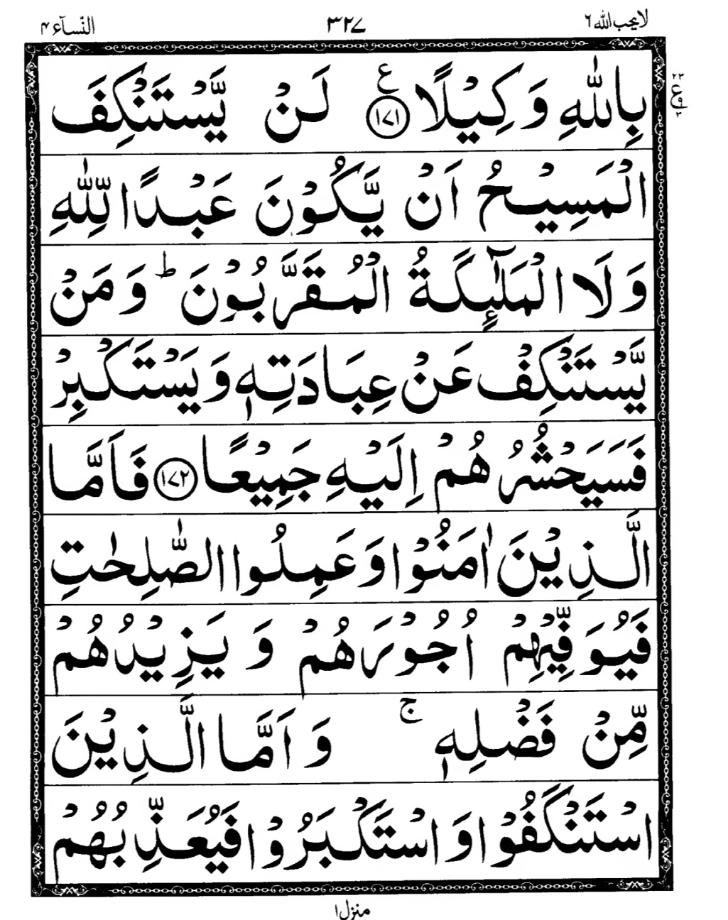 لا يحب الله ٦ ٣٢٧ النسآء ٤
بِاللّٰهِ وَكِيْلًا ﴿١٧١﴾ ع لَنْ يَّسْتَنْكِفَ
٢٣
ع
٣
الْمَسِيْحُ اَنْ يَّكُوْنَ عَبْدًا لِّلّٰهِ
وَلَا الْمَلٰٓئِكَةُ الْمُقَرَّبُوْنَ ؕ وَمَنْ
يَّسْتَنْكِفْ عَنْ عِبَادَتِهٖ وَيَسْتَكْبِرْ
فَسَيَحْشُرُهُمْ اِلَيْهِ جَمِيْعًا ﴿١٧٢﴾ فَاَمَّا
الَّذِيْنَ اٰمَنُوْا وَعَمِلُوا الصّٰلِحٰتِ
فَيُوَفِّيْهِمْ اُجُوْرَهُمْ وَ يَزِيْدُهُمْ
مِّنْ فَضْلِهٖ ۚ وَ اَمَّا الَّذِيْنَ
اسْتَنْكَفُوْا وَ اسْتَكْبَرُوْا فَيُعَذِّبُهُمْ
منزل ١